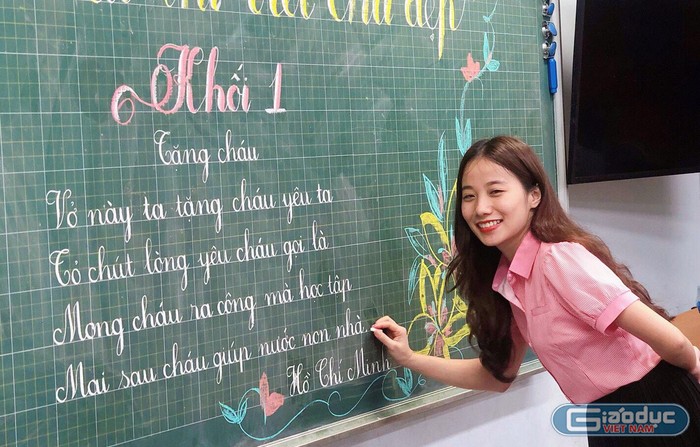 thi viết chữ đẹp
Khối 1
Tặng cháu
Vở này ta tặng cháu yêu ta
Tỏ chút lòng yêu cháu gọi là
Mong cháu ra công mà học tập
Mai sau cháu giúp nước non nhà.
Hồ Chí Minh
Giáoduc
VIỆT NAM